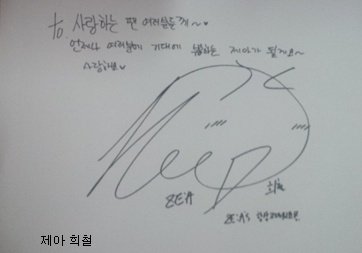 to. 사랑하는 팬 여러분들께~♥
언제나 여러분에 기대에 하는 제아가 될게요~
사랑해요♥
ZE:A
희철
ZE:A's
제아 희철